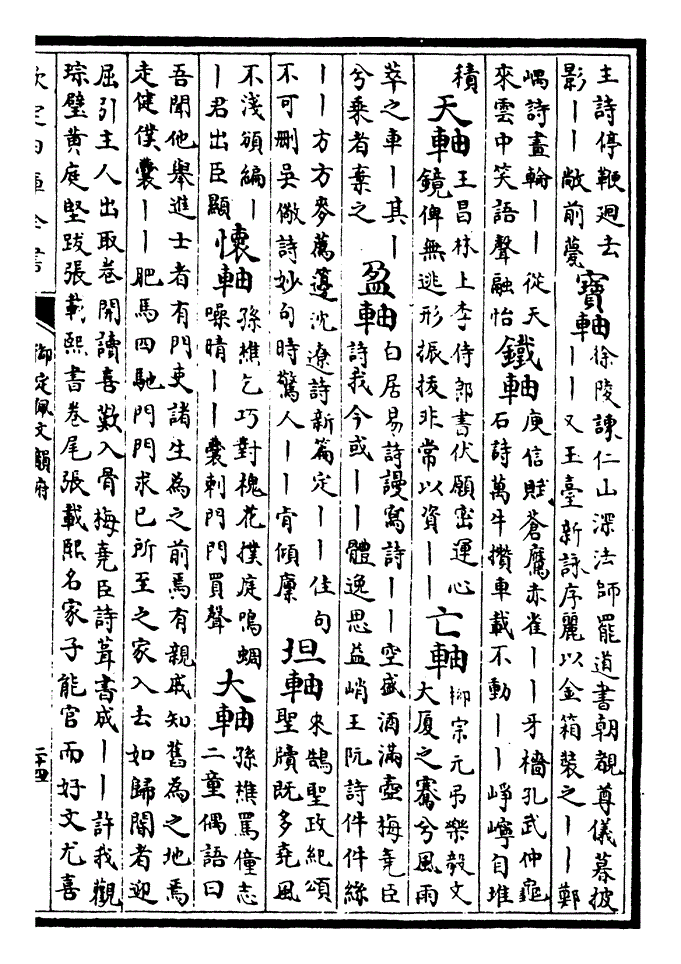 主詩停鞭迴去
影丨丨敞前甍
寶軸
徐陵諫仁山深法師罷道書朝覩尊儀暮披
丨丨又玉臺新詠序麗以金箱裝之丨丨鄭
嵎詩畫輪丨丨從天
來雲中笑語聲融怡
鐵軸
庾信賦蒼鷹赤雀丨丨牙檣孔武仲寵
石詩萬牛攢車載不動丨丨崢嶸自堆
積
天軸
王昌林上李侍郎書伏願密運心
鏡俾無逃形振拔非常以資丨丨
亡軸
柳宗元弔樂毅文
大厦之騫兮風雨
萃之車丨其丨
兮乘者棄之
盈軸
白居易詩謾寫詩丨丨空盛酒滿壺梅堯臣
詩我今或丨丨體逸思益峭王阮詩件件絲
丨丨方方麥萬籩沈遼詩新篇定丨丨佳句
不可刪吳儆詩妙句時驚人丨丨肯傾廩
坦軸
來鵠聖政紀頌
聖牘既多堯風
不淺頒編丨
丨君出臣顯
懷軸
孫樵乞巧對槐花撲庭鳴蜩
噪晴丨丨囊刺門門買聲
大軸
孫樵罵僮志
二童偶語曰
吾聞他舉進士者有門吏諸生為之前焉有親戚知舊為之地焉
走健僕囊丨丨肥馬四馳門門求已所至之家入去如歸閽者迎
屈引主人出取卷開讀喜歎入骨梅堯臣詩葺書成丨丨許我觀
琮璧黃庭堅跋張載熙書卷尾張載熙名家子能官而好文尤喜
欽定四庫全書
御定佩文韻府
二十四